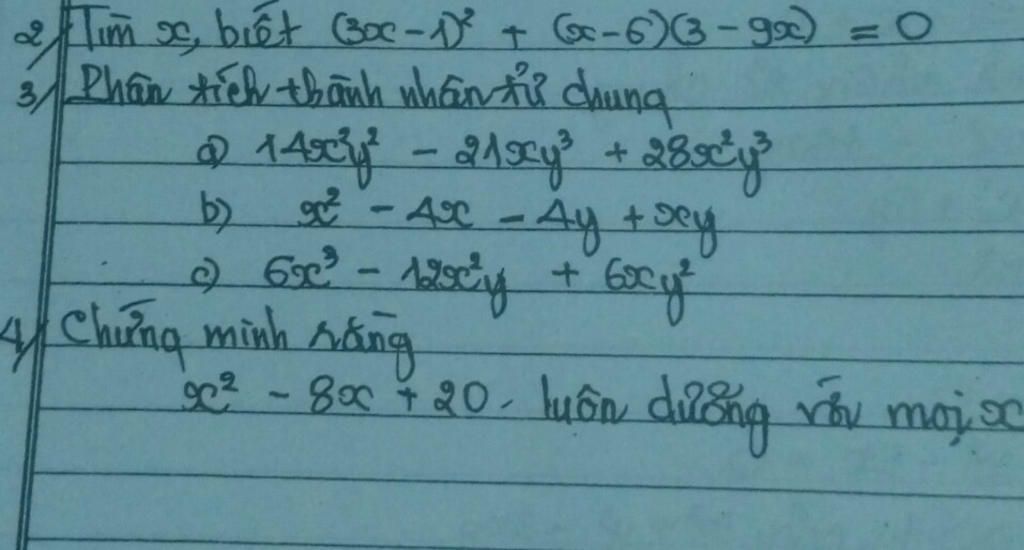 2/ Tìm x, biết (3x - 1)² + (x - 6)(3 - 9x) = 0
3/ Phân tích thành nhân tử chung
a) 14x²y² - 21xy³ + 28x²y³
b) x² - 4x - 4y + xy
c) 6x³ - 12x²y + 6xy²
4/ Chứng minh rằng
x² - 8x + 20 . luôn dương với mọi x